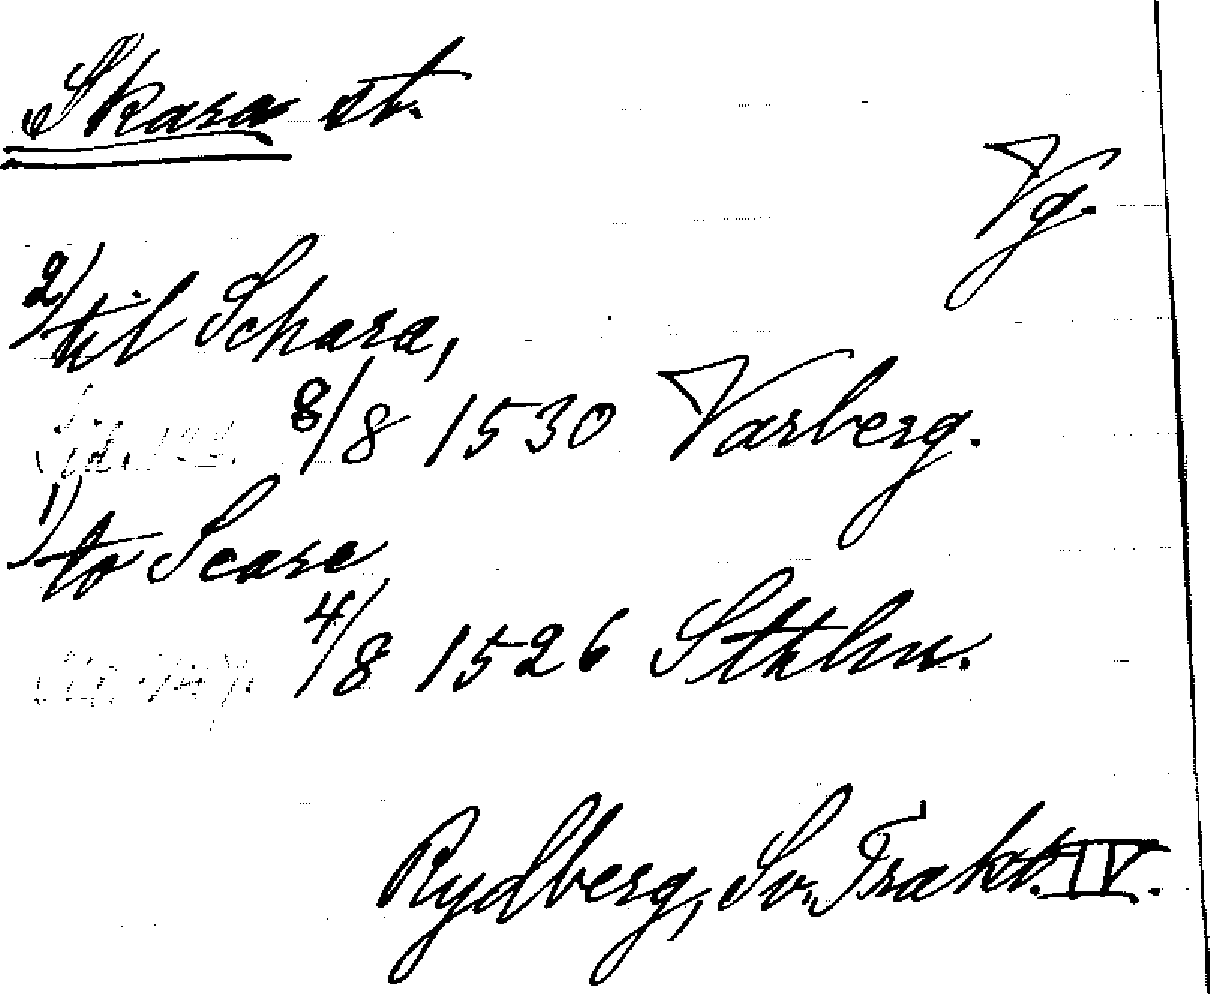 Skara st.
Vg.
2) til Schara,
8/8 1530 Varberg.
1) to Scare
4/8 1526 Sthlm.
Rydberg, Sv. Trakt. IV.